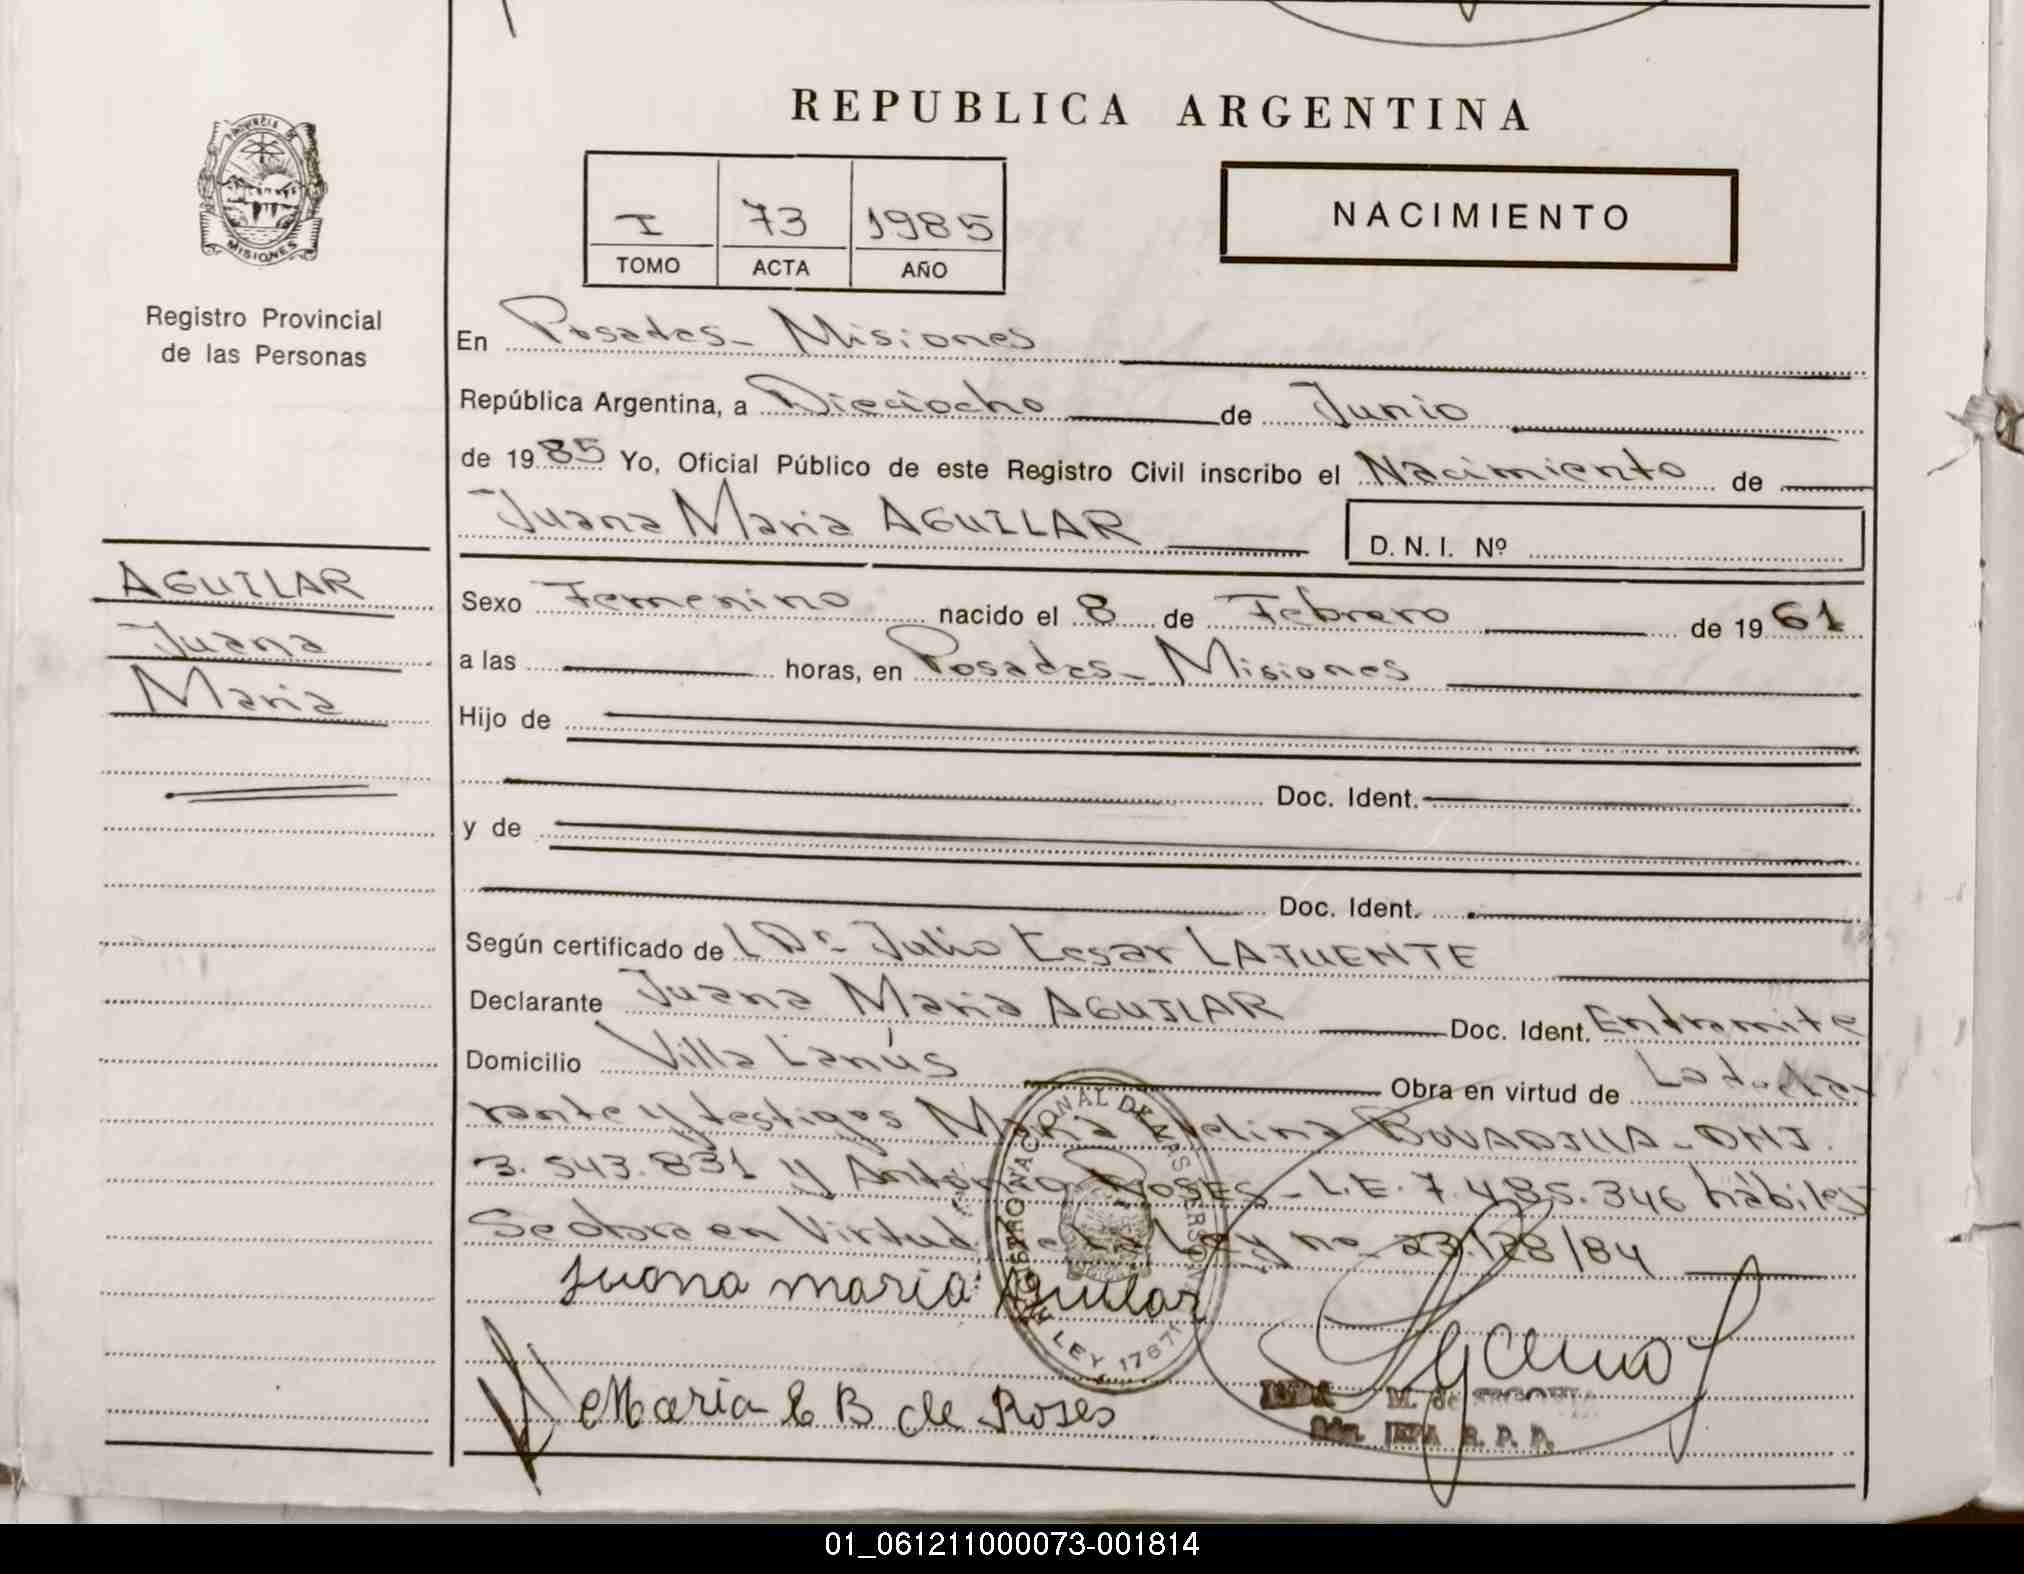 REPUBLICA ARGENTINA
PROVINCIA DE
MISIONES
Registro Provincial
de las Personas
I 73 1985
TOMO ACTA AÑO
NACIMIENTO
En Posadas - Misiones
República Argentina, a Dieciocho de Junio
de 1985 Yo, Oficial Público de este Registro Civil inscribo el Nacimiento de
Juana Maria AGUILAR
D. N. I. Nº
AGUILAR
Juana
Maria
Sexo Femenino nacido el 8 de Febrero de 1961
a las horas, en Posadas - Misiones
Hijo de
Doc. Ident.
y de
Doc. Ident.
Según certificado de Dr. Julio Cesar LAFUENTE
Declarante Juana Maria AGUILAR Doc. Ident. Entramite
Domicilio Villa Lanús Obra en virtud de La decla
rante y testigos Maria Evelina BOVADILLA - DNI.
3.543.831 y Antonio ROSES - L.E. 7.485.346 hábiles
Se obra en Virtud de la Ley no 23.128/84
Juana maria Aguilar
REGISTRO NACIONAL DE LAS PERSONAS
LEY 17671
Maria E B de Roses
M. de
R. P. P.
01_061211000073-001814